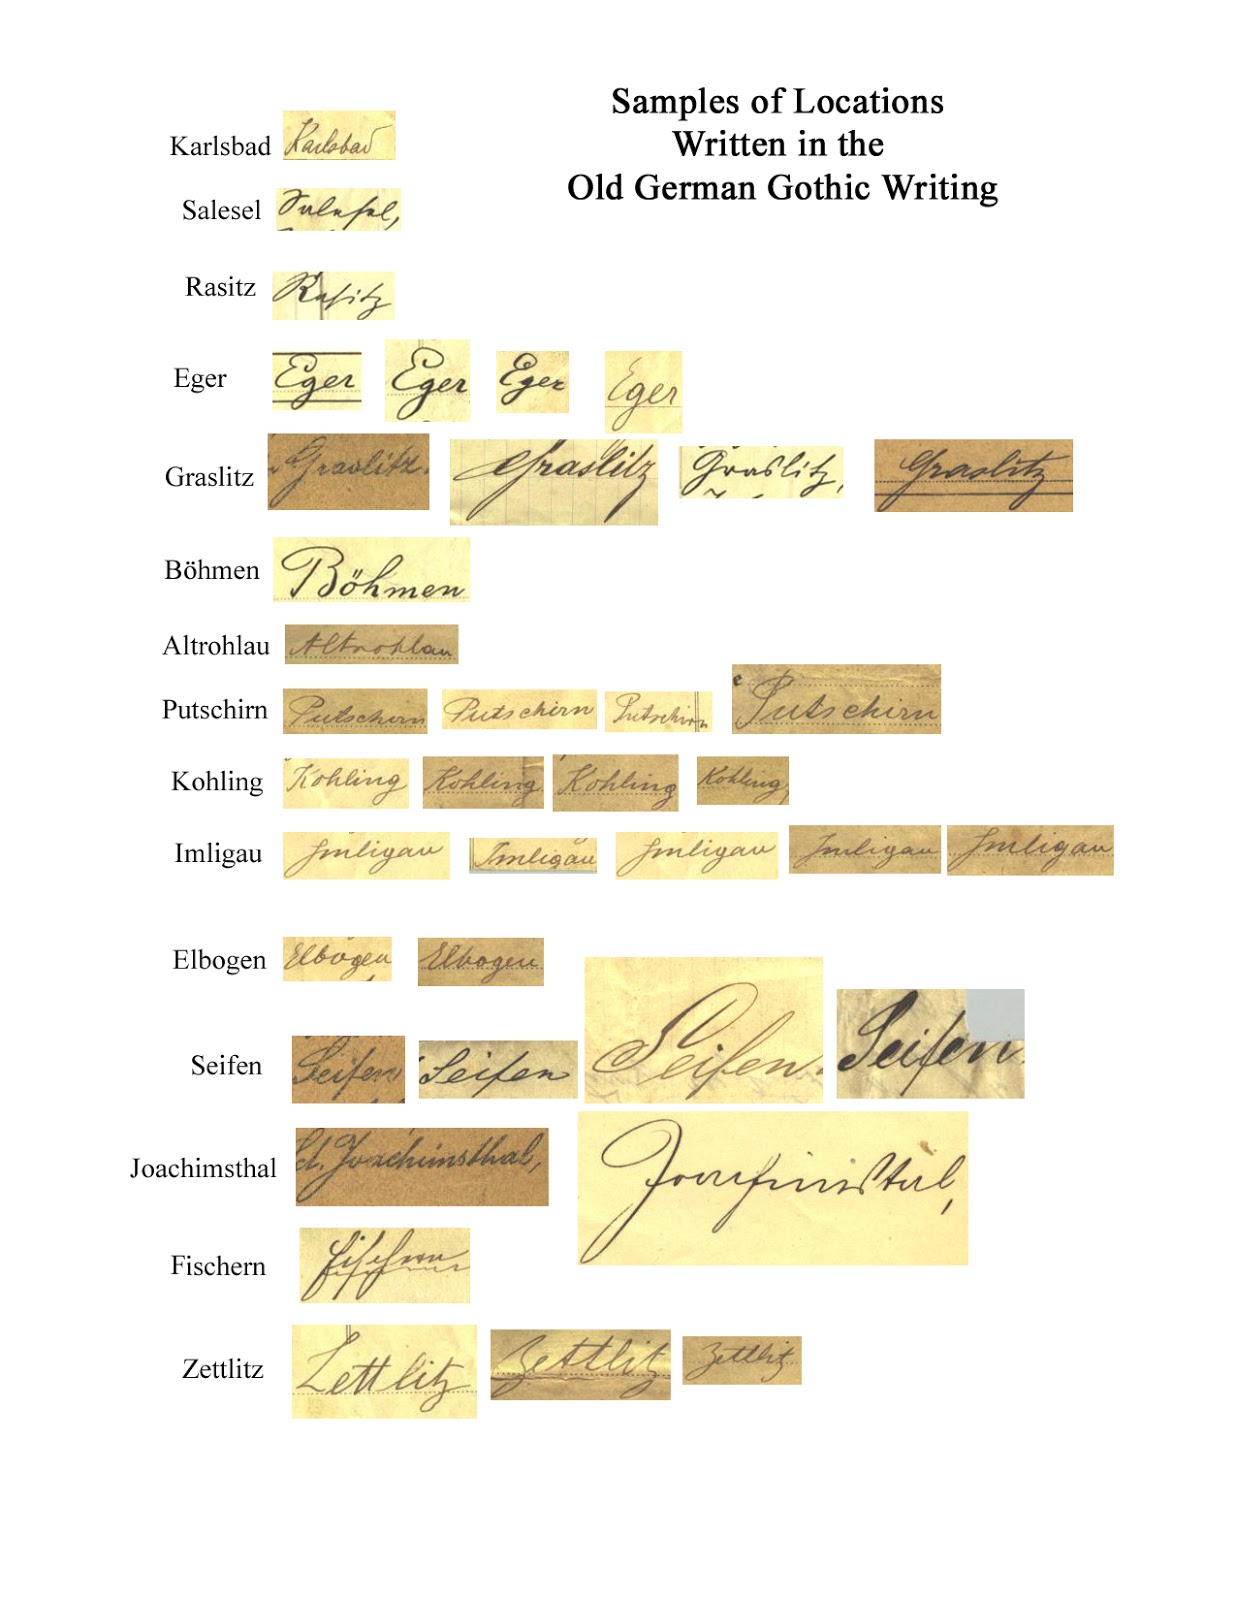 Samples of Locations
Written in the
Old German Gothic Writing
Karlsbad Karlsbad
Salesel Salesel,
Rasitz Rasitz
Eger Eger Eger Eger Eger
Graslitz Graslitz. Graslitz Graslitz, Graslitz
Böhmen Böhmen
Altrohlau Altrohlau
Putschirn Putschirn Putschirn Putschirn Putschirn
Kohling Kohling Kohling Kohling Kohling,
Imligau Imligau Imligau Imligau Imligau Imligau
Elbogen Elbogen Elbogen
Seifen Seifen, Seifen Seifen. Seifen.
Joachimsthal d. Joachimsthal, Joachimsthal,
Fischern Fischern
Zettlitz Zettlitz Zettlitz Zettlitz